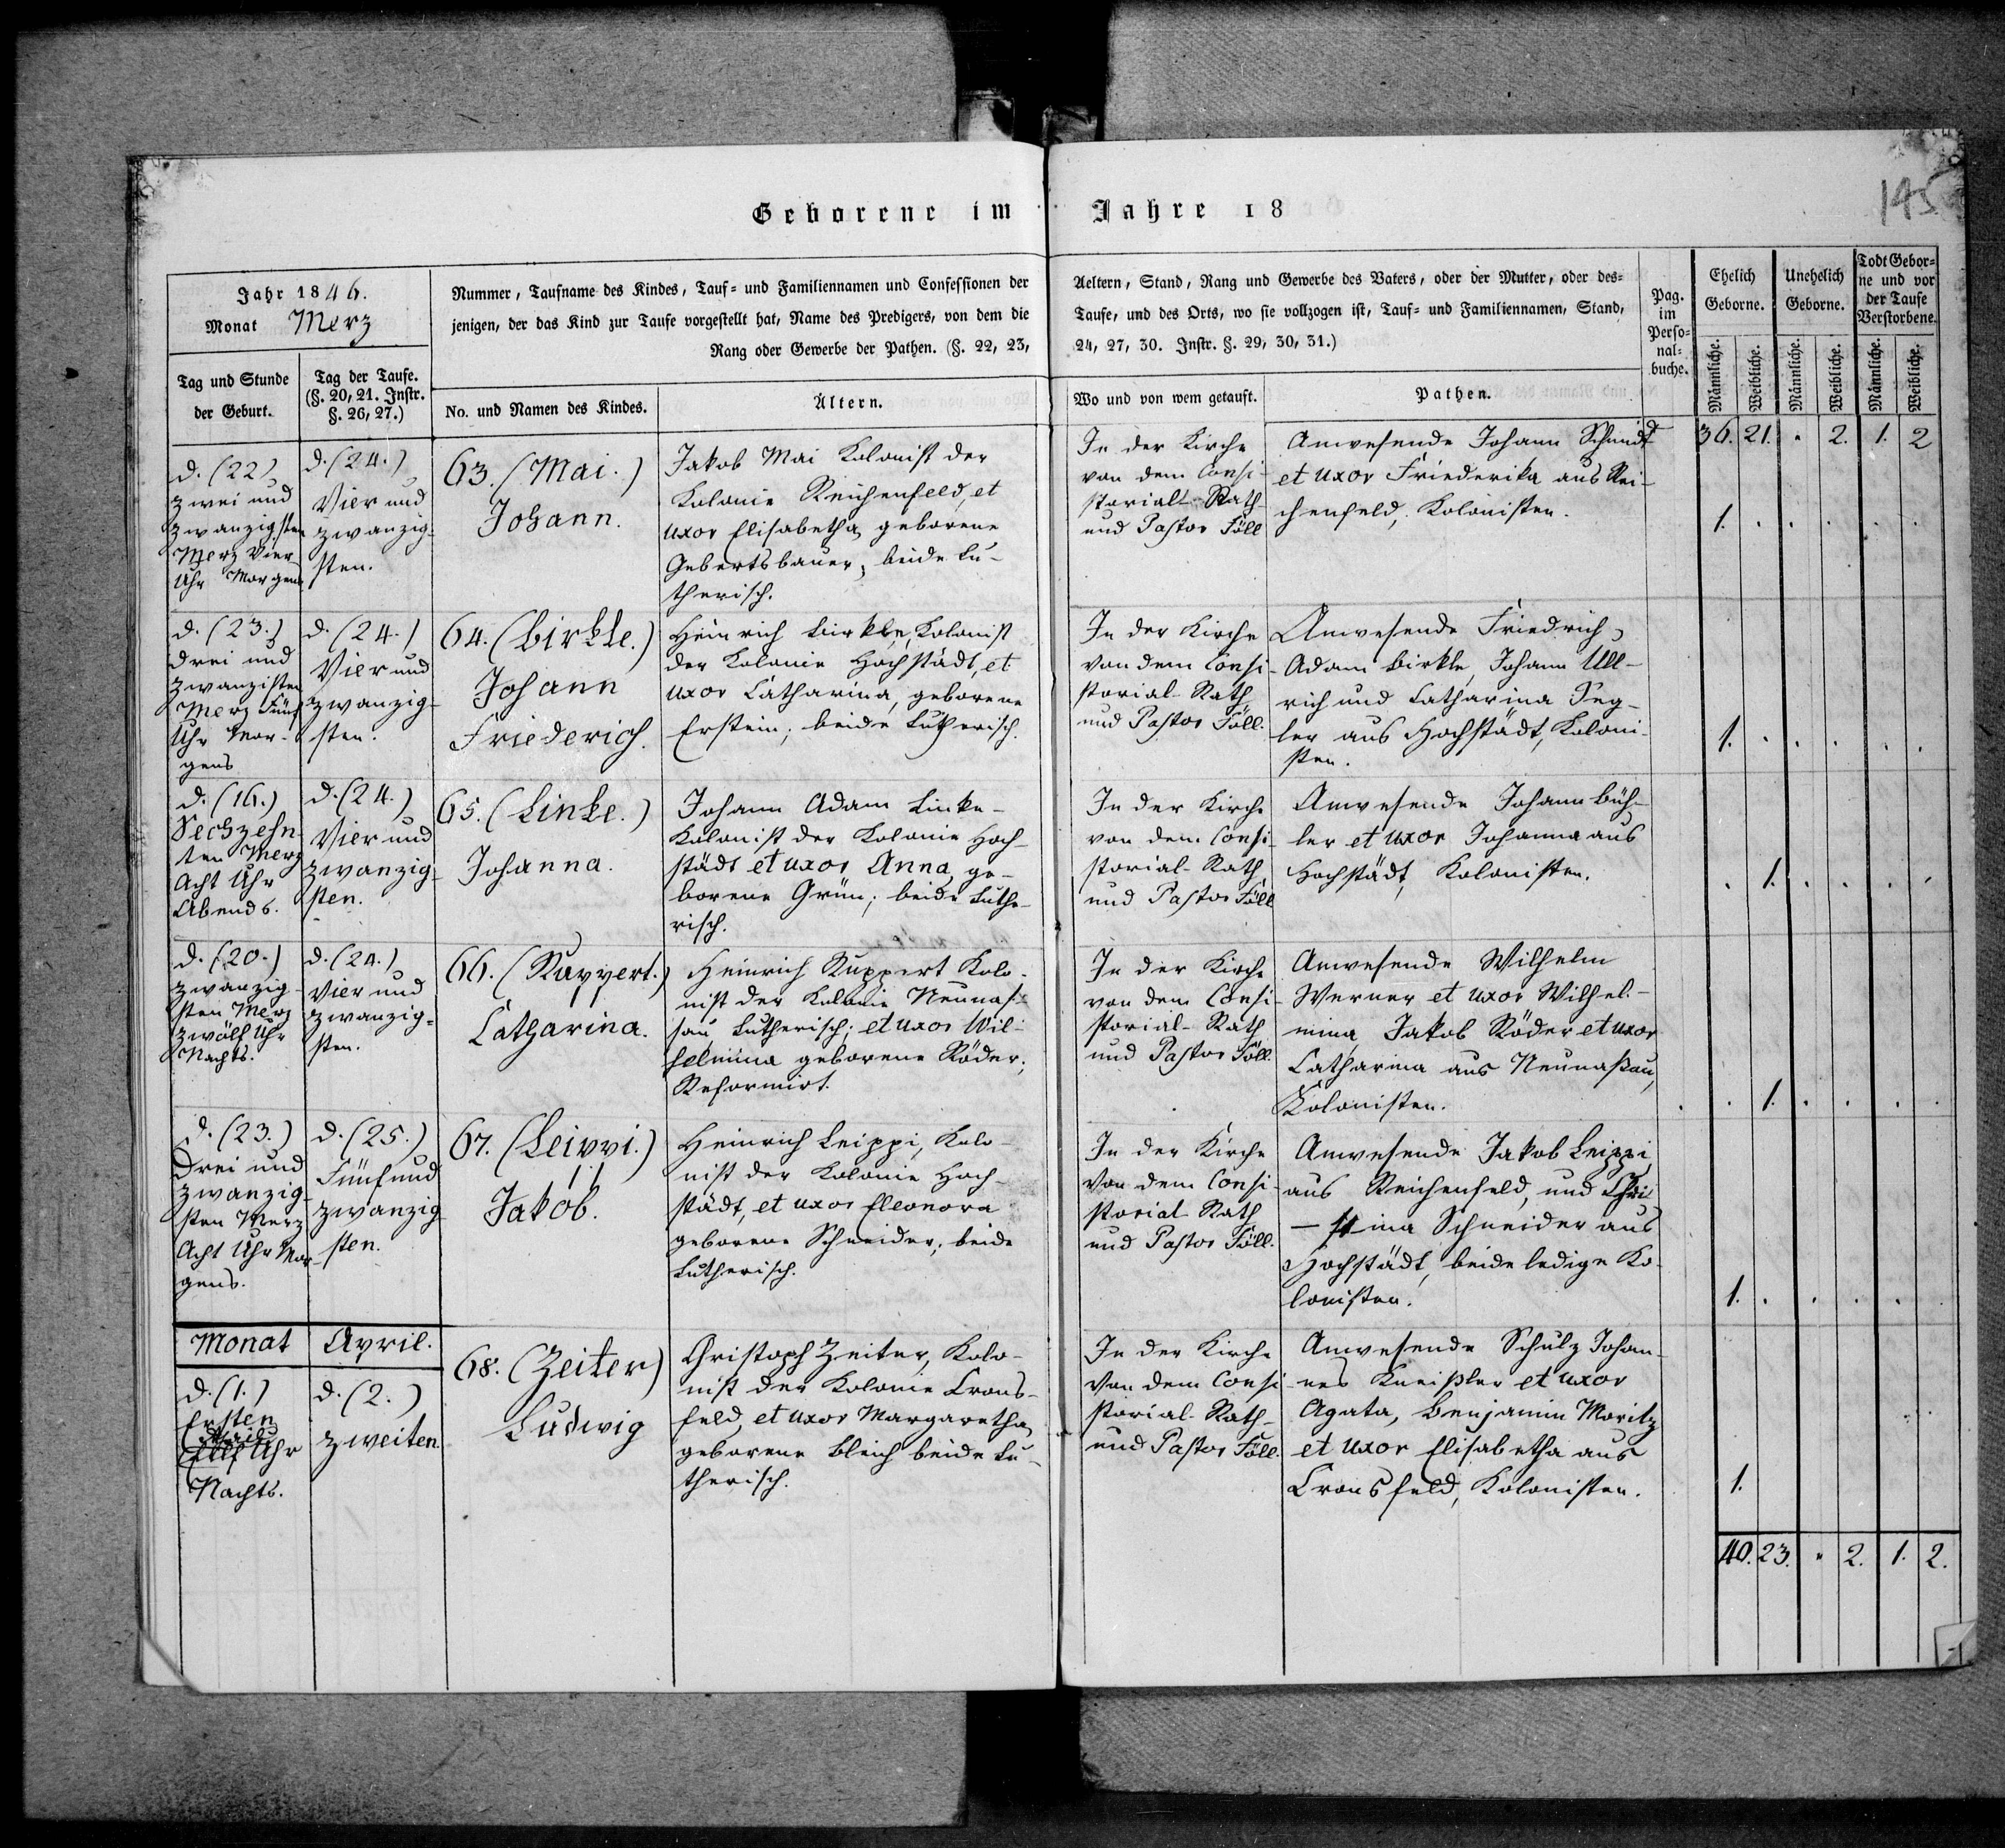 Geborene im Jahre 18
145
Jahr 1846.
Monat Merz
Nummer, Taufname des Kindes, Tauf= und Familiennamen und Confessionen der
jenigen, der das Kind zur Taufe vorgestellt hat, Name des Predigers, von dem die
Rang oder Gewerbe der Pathen. (§. 22, 23,
Aeltern, Stand, Rang und Gewerbe des Vaters, oder der Mutter, oder des=
Taufe, und des Orts, wo sie vollzogen ist, Tauf= und Familiennamen, Stand,
24, 27, 30. Instr. §. 29, 30, 31.)
Pag.
im
Perso=
nal=
buche.
Ehelich
Geborne.
Unehelich
Geborne.
Todt Gebor=
ne und vor
der Taufe
Verstorbene.
Tag und Stunde
der Geburt.
Tag der Taufe.
(§. 20, 21. Instr.
§. 26, 27.)
No. und Namen des Kindes.
Ältern.
Wo und von wem getauft.
Pathen.
Männliche.
Weibliche.
Männliche.
Weibliche.
Männliche.
Weibliche.
36. 21. . 2. 1. 2
d. (22)
zwei und
zwanzigsten
Merz Vier
Uhr Morgens
d. (24.)
Vier und
zwanzig-
sten.
63. (Mai.)
Johann.
Jakob Mai Kolonist der
Kolonie Reichenfeld, et
uxor Elisabetha, geborene
Gebertsbauer, beide Lu-
therisch.
In der Kirche
von dem Consi-
storial-Rath
und Pastor Föll
Anwesende Johann Schmidt
et uxor Friederika aus Rei-
chenfeld, Kolonisten.
1. . . . . .
d. (23.)
drei und
zwanzisten
Merz Fünf
Uhr Mor-
gens
d. (24.)
Vier und
zwanzig-
sten.
64. (Birkle.)
Johann
Friederich.
Heinrich Birkle, Kolonist
der Kolonie Hochstädt, et
uxor Catharina, geborene
Erstein; beide Lutherisch.
In der Kirche
von dem Consi-
storial-Rath
und Pastor Föll.
Anwesende Friedrich,
Adam Birkle, Johann Ull-
rich und Catharina Feg-
ler aus Hochstädt, Koloni-
sten.
1. . . . . .
d. (16.)
Sechzehn-
ten Merz
Acht Uhr
Abends.
d. (24.)
Vier und
zwanzig-
sten.
65. (Linke.)
Johanna.
Johann Adam Linke-
Kolonist der Kolonie Hoch-
städt et uxor Anna, ge-
borene Grün; beide Luthe-
risch.
In der Kirche
von dem Consi-
storial-Rath
und Pastor Föll
Anwesende Johann Büh-
ler et uxor Johanna aus
Hochstädt, Kolonisten.
. 1. . . . .
d. (20.)
zwanzig-
sten Merz
zwölf Uhr
Nachts.
d. (24.)
Vier und
zwanzig-
sten.
66. (Ruppert.)
Catharina.
Heinrich Ruppert Kolo-
nist der Kolonie Neunas-
sau, Lutherisch; et uxor Wil-
helmina geborene Röder;
Reformirt.
In der Kirche
von dem Consi-
storial-Rath
und Pastor Föll.
Anwesende Wilhelm
Werner et uxor Wilhel-
mina, Jakob Röder et uxor
Catharina aus Neunaßau,
Kolonisten.
. 1. . . . .
d. (23.)
Drei und
zwanzig-
sten Merz
Acht Uhr Mor-
gens.
d. (25.)
Fünf und
zwanzig-
sten.
67. (Leippi.)
Jakob.
Heinrich Leippi, Kolo-
nist der Kolonie Hoch-
städt, et uxor Eleonora
geborene Schneider, beide
Lutherisch.
In der Kirche
Von dem Consi-
storial Rath
und Pastor Föll.
Anwesende Jakob Leippi
aus Reichenfeld, und Chri
-stina Schneider aus
Hochstädt, beide ledige Ko-
lonisten.
1. . . . . .
Monat April.
d. (1.)
Ersten
April
Eilf Uhr
Nachts.
d. (2.)
zweiten
68. (Zeiter)
Ludwig
Christoph Zeiter, Kolo-
nist der Kolonie Crons-
feld, et uxor Margaretha,
geborene Bleich beide Lu-
therisch.
In der Kirche
Von dem Consi-
storial-Rath-
und Pastor Föll.
Anwesende Schulz Johan-
nes Kneißler et uxor
Agata, Benjamin Moritz
et uxor Elisabetha aus
Cronsfeld, Kolonisten.
1.
40. 23. . 2. 1. 2.